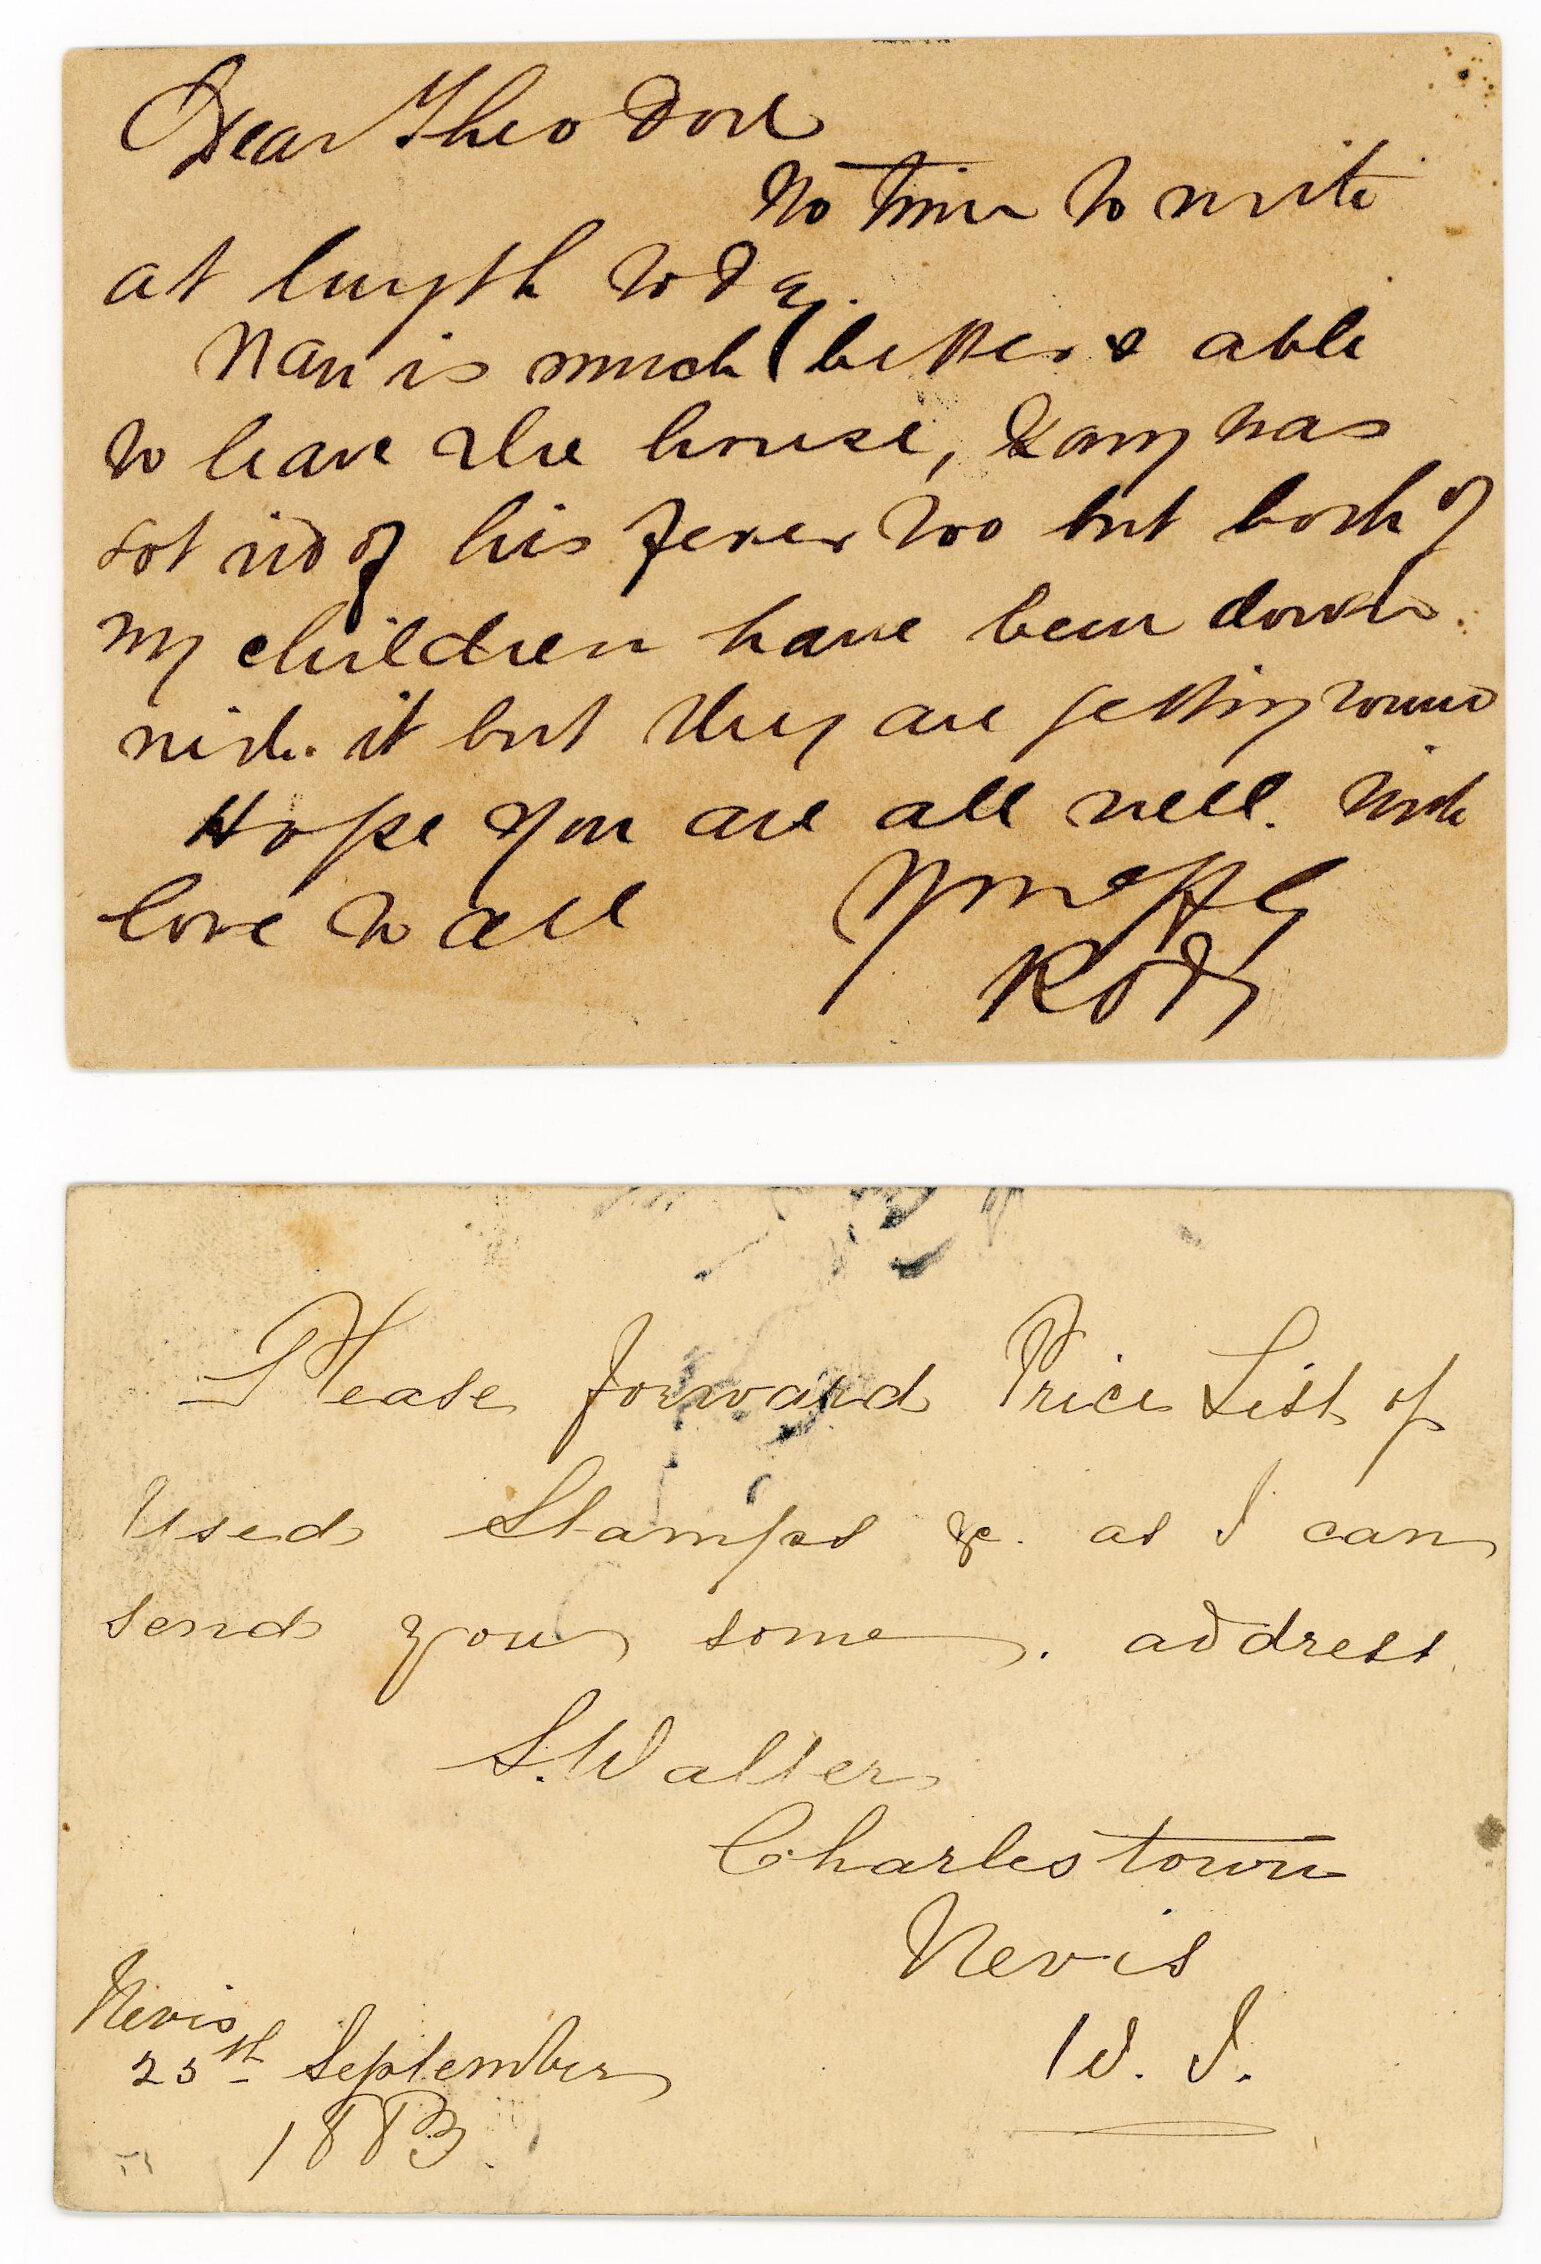 Dear Theodore
No time to write
at length today.
Nan is much better & able
to leave the house, has
got rid of his fever too but both of
my children have been down
with it but they are getting round
Hope you are all well. With
love to all
Yours affly
Roddy
Please forward Price List of
Used Stamps &c. as I can
send you some. address
S. Walter
Charlestown
Nevis
W. I.
Nevis
25th September
1883.